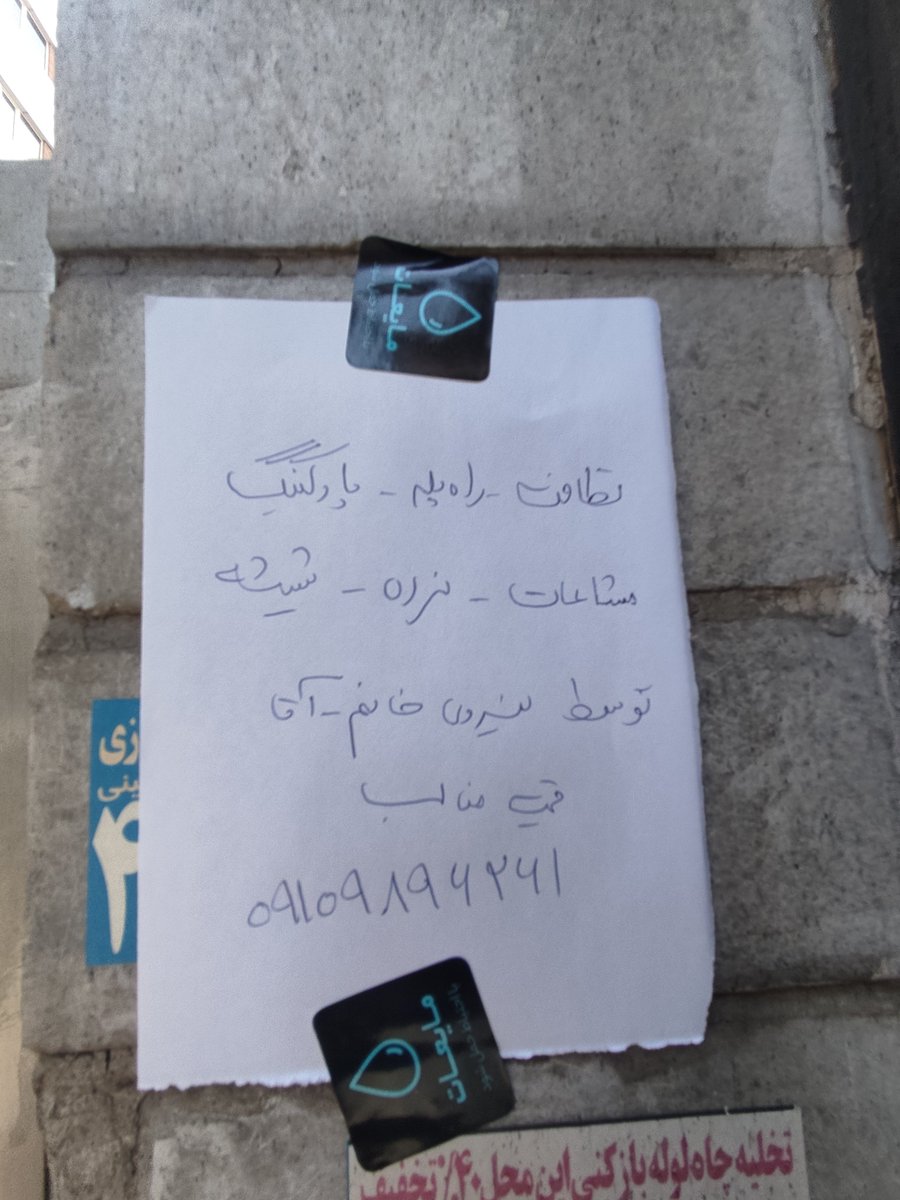 مایعات
نظافت - راه پله - پارکینگ
مشاعات - نرده - شیشه
توسط نیروی خانم - آقا
قیمت مناسب
۰۹۱۰۹۸۹۶۲۶۱
زی
ینی
۴
مایعات
تخلیه چاه لوله بازکنی این محل ۴۰٪ تخفیف